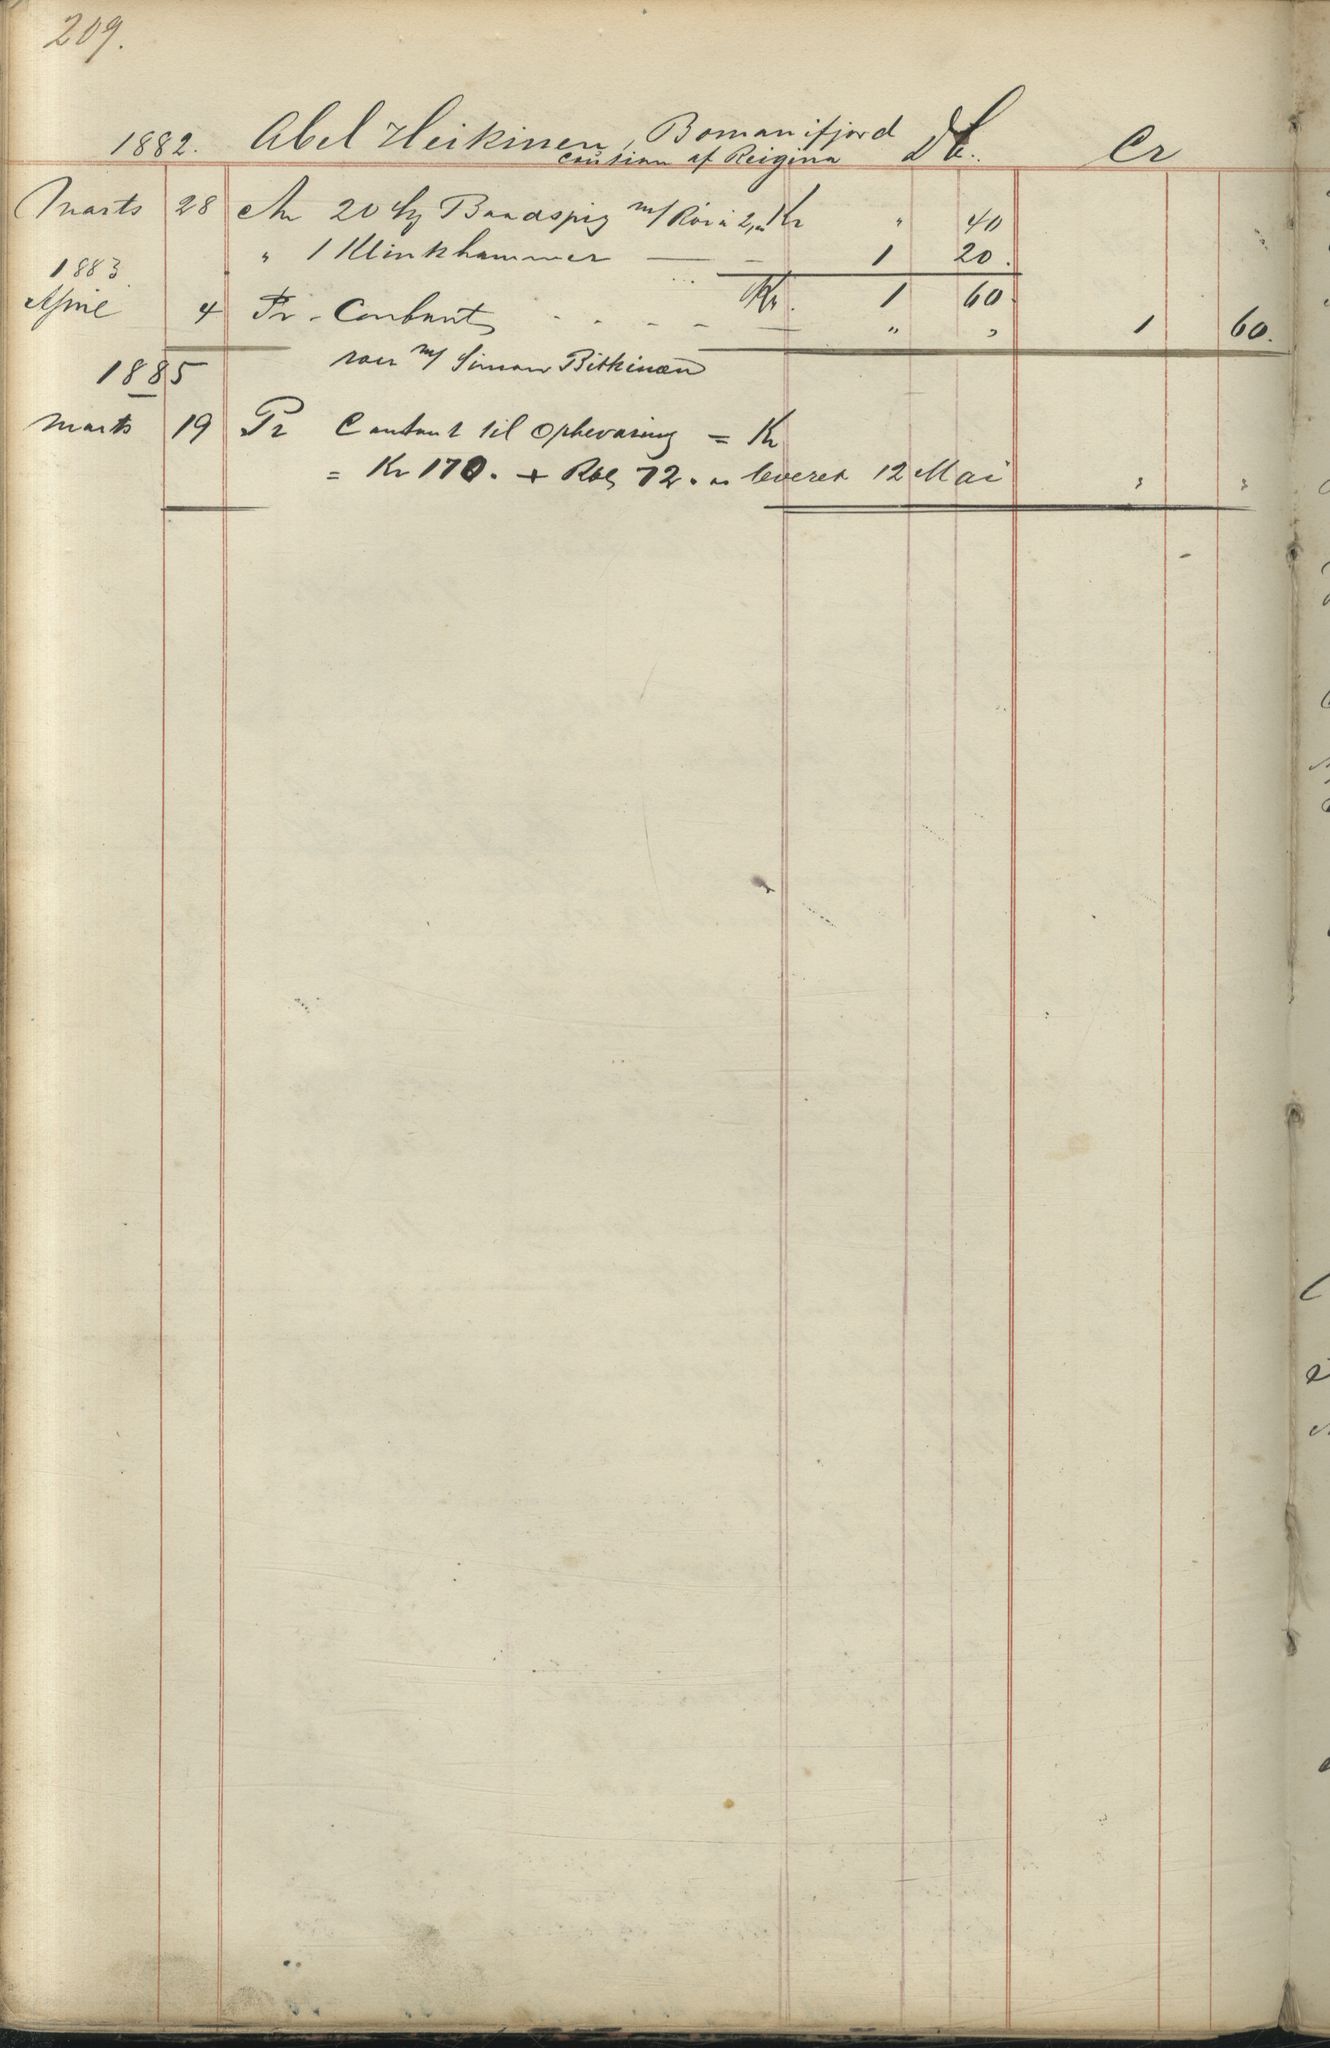 209.
1882. Abel Heikinen, Bomanifjord Db. Cr
Caution af Reigina
Marts 28 An 20 Baadspig m/ Kr " 40
" 1 Klinkhammer — 1 20.
1883 Kr. 1 60.
April 4 Pr. Contant - - - - " " 1 60.
roer m/ Simon Pitkinæn
1885
Marts 19 Pr Contant til Ophevaring = Kr
= Kr 170. + Rbl 72. leveret 12 Mai " "